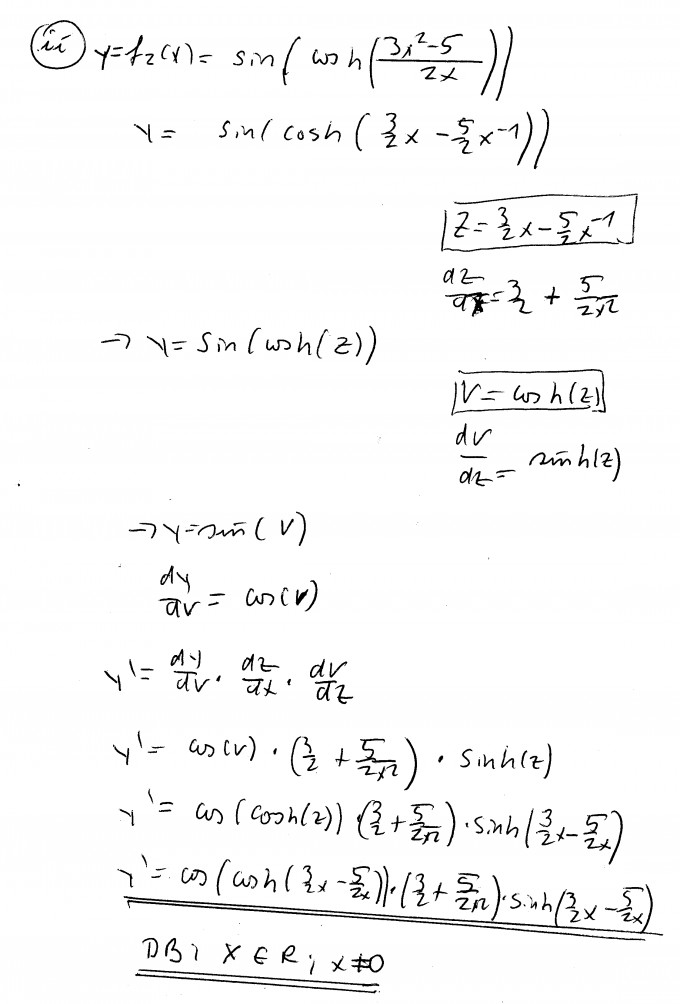 ii y=f₂(x)= sin(cosh(\frac{3x²-5}{2x}))
y= sin(cosh(\frac{3}{2}x-\frac{5}{2}x⁻¹))
z=\frac{3}{2}x-\frac{5}{2}x⁻¹
\frac{dz}{dx}=\frac{3}{2}+\frac{5}{2x²}
→ y= sin(cosh(z))
v= cosh(z)
\frac{dv}{dz}= sinh(z)
→ y=sin(v)
\frac{dy}{dv}= cos(v)
y'=\frac{dy}{dv}·\frac{dz}{dx}·\frac{dv}{dz}
y'= cos(v)·(\frac{3}{2}+\frac{5}{2x²})·sinh(z)
y'= cos(cosh(z))·(\frac{3}{2}+\frac{5}{2x²})·sinh(\frac{3}{2}x-\frac{5}{2x})
y'= cos(cosh(\frac{3}{2}x-\frac{5}{2x}))·(\frac{3}{2}+\frac{5}{2x²})·sinh(\frac{3}{2}x-\frac{5}{2x})
DB; x∈R; x≠0